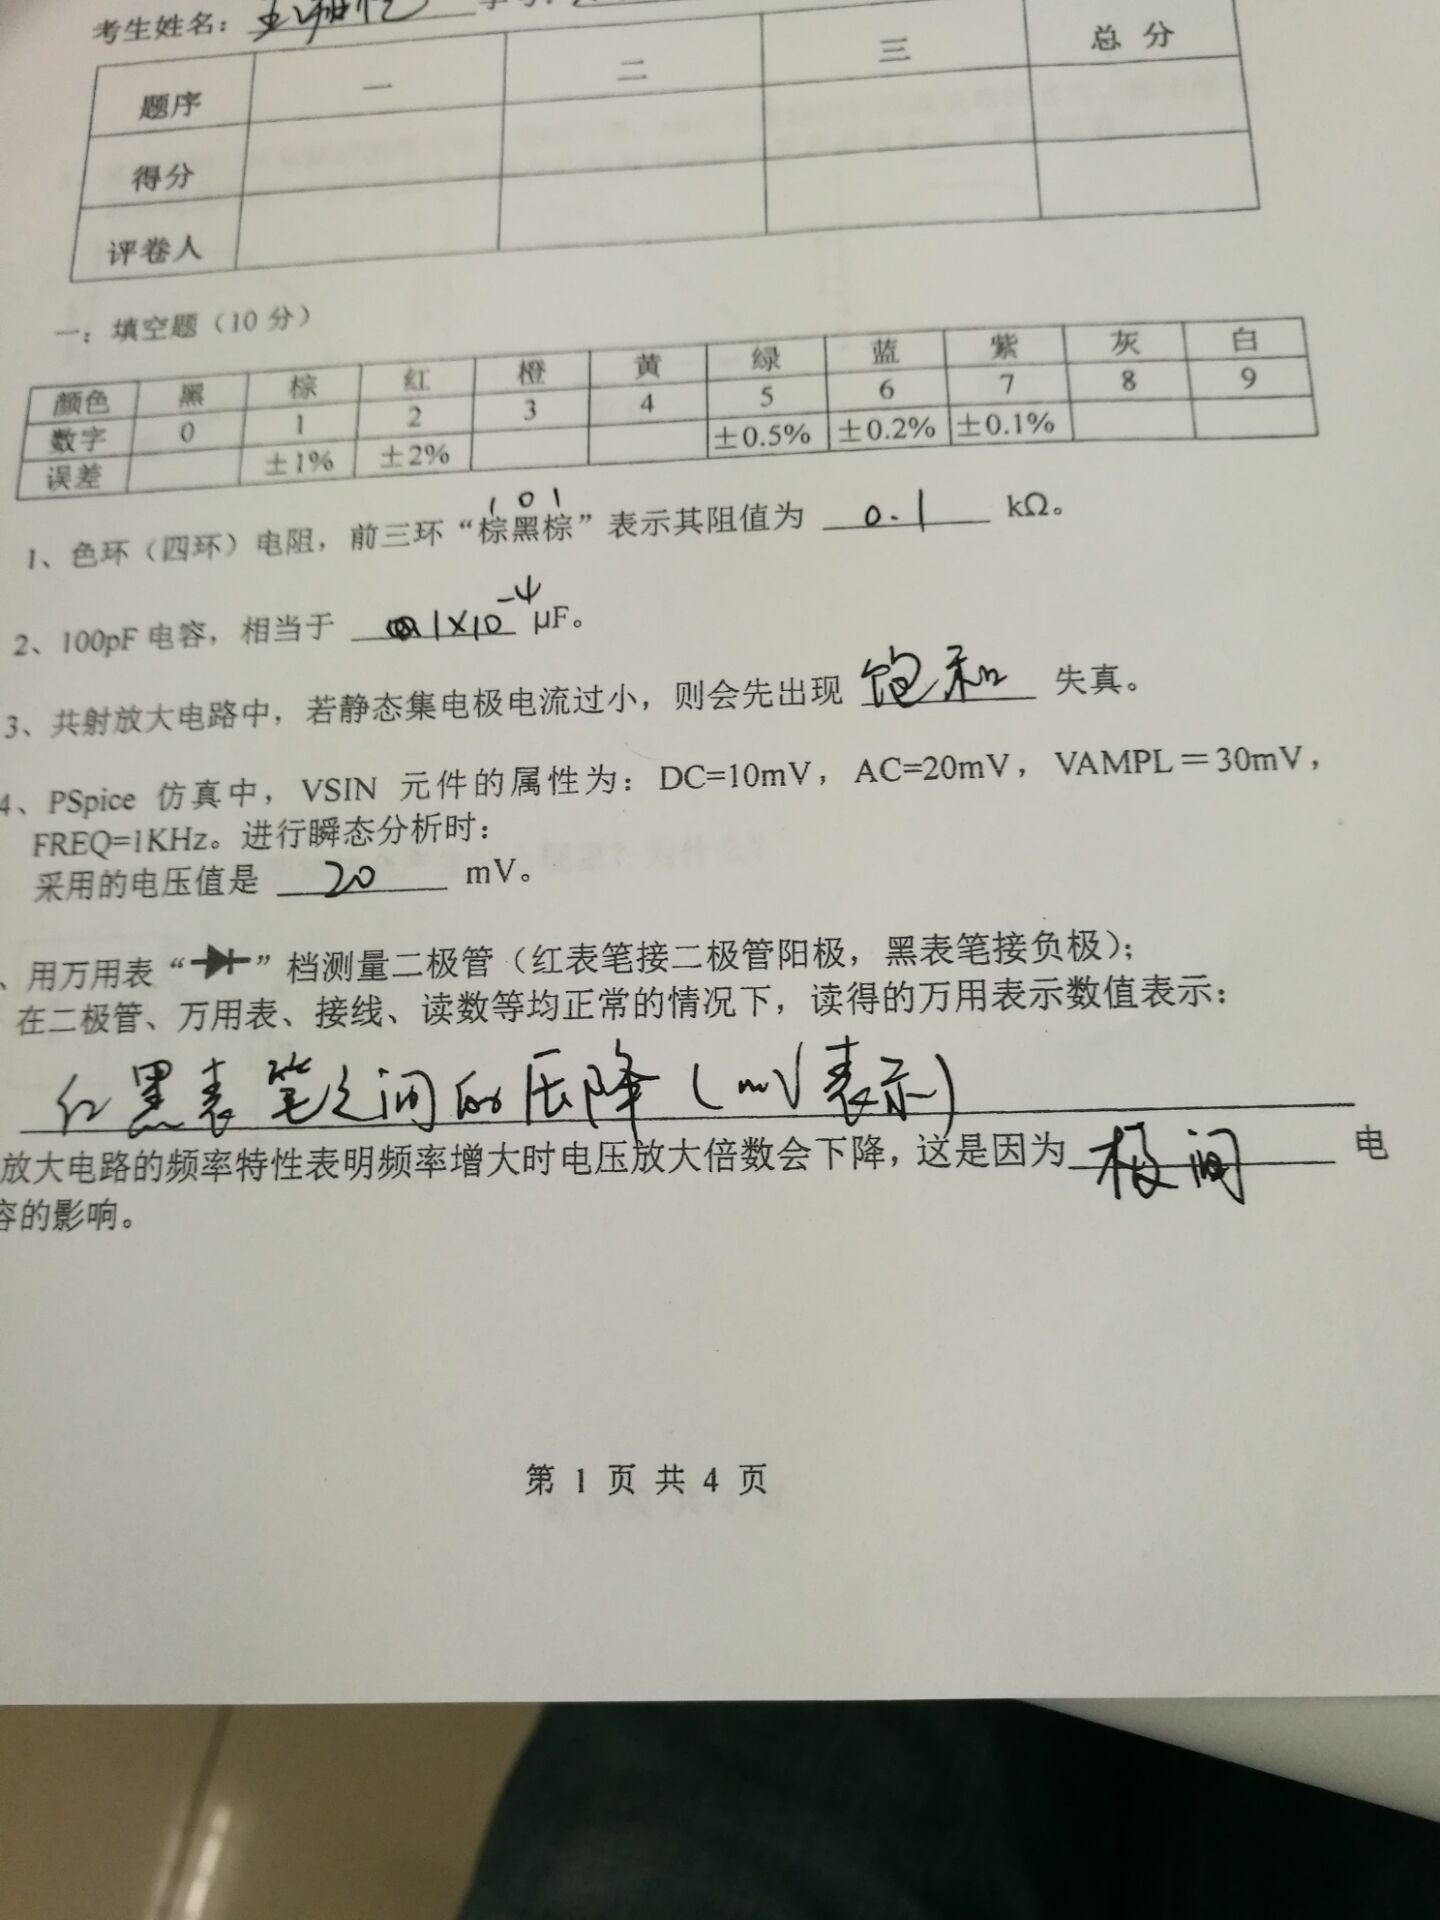 考生姓名：
题序 一 二 三 总 分
得分
评卷人
一：填空题（10 分）
颜色 黑 棕 红 橙 黄 绿 蓝 紫 灰 白
数字 0 1 2 3 4 5 6 7 8 9
误差 ±1% ±2% ±0.5% ±0.2% ±0.1%
1 0 1
1、色环（四环）电阻，前三环“棕黑棕”表示其阻值为 0.1 kΩ。
2、100pF 电容，相当于 1×10⁻⁴ μF。
3、共射放大电路中，若静态集电极电流过小，则会先出现 饱和 失真。
4、PSpice 仿真中，VSIN 元件的属性为：DC=10mV，AC=20mV，VAMPL＝30mV，
FREQ=1KHz。进行瞬态分析时：
采用的电压值是 20 mV。
、用万用表“ ”档测量二极管（红表笔接二极管阳极，黑表笔接负极）；
在二极管、万用表、接线、读数等均正常的情况下，读得的万用表示数值表示：
红黑表笔之间的压降（mV表示）
放大电路的频率特性表明频率增大时电压放大倍数会下降，这是因为 极间 电
容的影响。
第 1 页 共 4 页